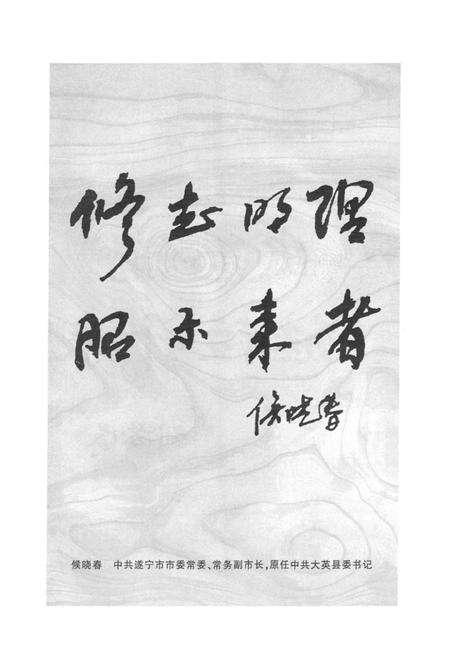 修志明理
昭示来者
侯晓春
候晓春　中共遂宁市市委常委、常务副市长,原任中共大英县委书记